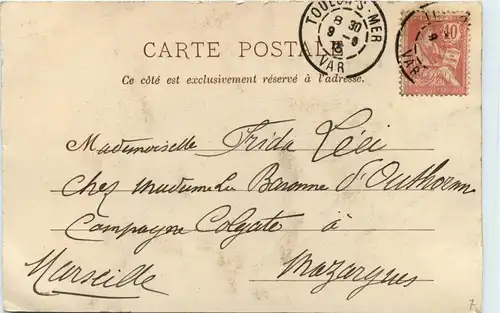 TOULON-S-MER
8 30
9 - 9
03
VAR
10
CARTE POSTALE
Ce côté est exclusivement réservé à l'adresse.
Mademoiselle Frida
Chez Madame La Baronne d'Outhorn
Campagne Colgate à
Marseille Mazargues